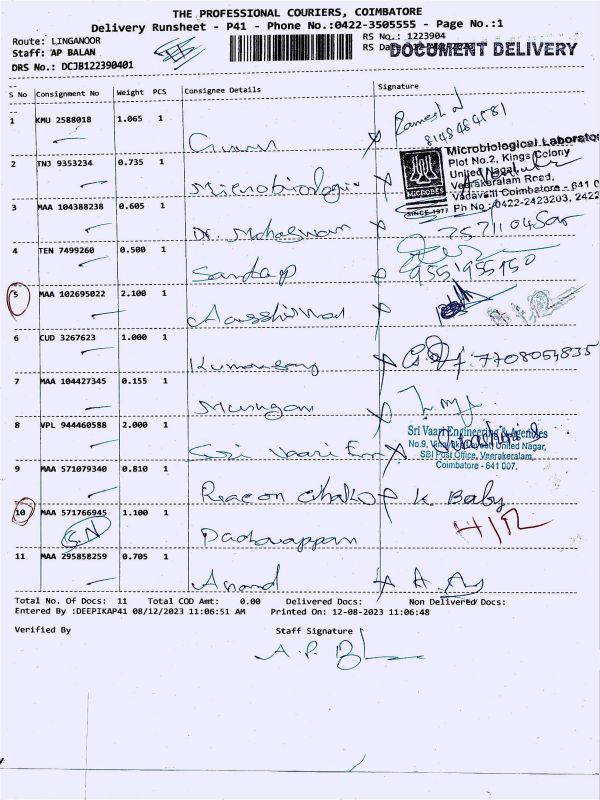 THE PROFESSIONAL COURIERS, COIMBATORE
Delivery Runsheet - P41 - Phone No.:0422-3505555 - Page No.:1
Route: LINGANOOR
RS No.: 1223904
Staff: AP BALAN
RS Date
DOCUMENT DELIVERY
DRS No.: DCJB122390401
S No Consignment No Weight PCS Consignee Details Signature
1 KMU 2588018 1.065 1
Ramesh
8148464581
Microbiological Laboratory
Plot No.2, Kings Colony
United Nagar
Veerakeralam Road,
Vadavalli Coimbatore - 641 0
Ph No : 0422-2423203, 2422
MICROBES
SINCE 1977
2 TNJ 9353234 0.735 1
Microbiologic
3 MAA 104388238 0.605 1
Dr. Maheswari
4 TEN 7499260 0.500 1
Sandap
955'955150
5 MAA 102695022 2.100 1
6 CUD 3267623 1.000 1
7708054835
7 MAA 104427345 0.155 1
Murugan
8 VPL 944460588 2.000 1
Sri Vaari En
Sri Vaari Engineering & Agencies
No.9, Vinayakar United Nagar,
SBI Post Office, Veerakeralam,
Coimbatore - 641 007.
9 MAA 571079340 0.810 1
K. Baby
10 MAA 571766945 1.100 1
S.N
11 MAA 295858259 0.705 1
Anand
Total No. Of Docs: 11 Total COD Amt: 0.00 Delivered Docs: Non Delivered Docs:
Entered By :DEEPIKAP41 08/12/2023 11:06:51 AM Printed On: 12-08-2023 11:06:48
Verified By Staff Signature
A.P.